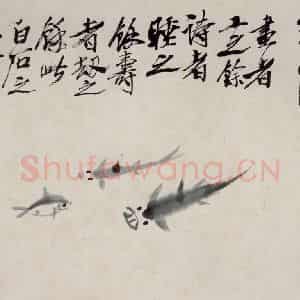 畫者
工之餘
詩者
睡之
餘壽
者劫之
餘此
白石之
Shufawang.CN